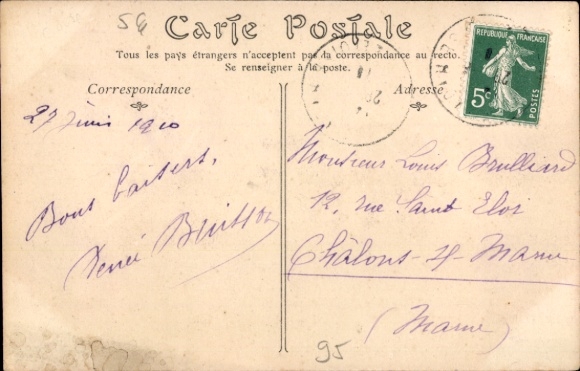 56
Carte Postale
Tous les pays étrangers n'acceptent pas la correspondance au recto.
Se renseigner à la poste.
Correspondance
Adresse
REPUBLIQUE FRANÇAISE
5c
POSTES
27 Juin 1910
Bons baisers,
Renée Buisson
Monsieur Louis Brulliard
12, rue Saint Eloi
Châlons-s-Marne
(Marne)
95